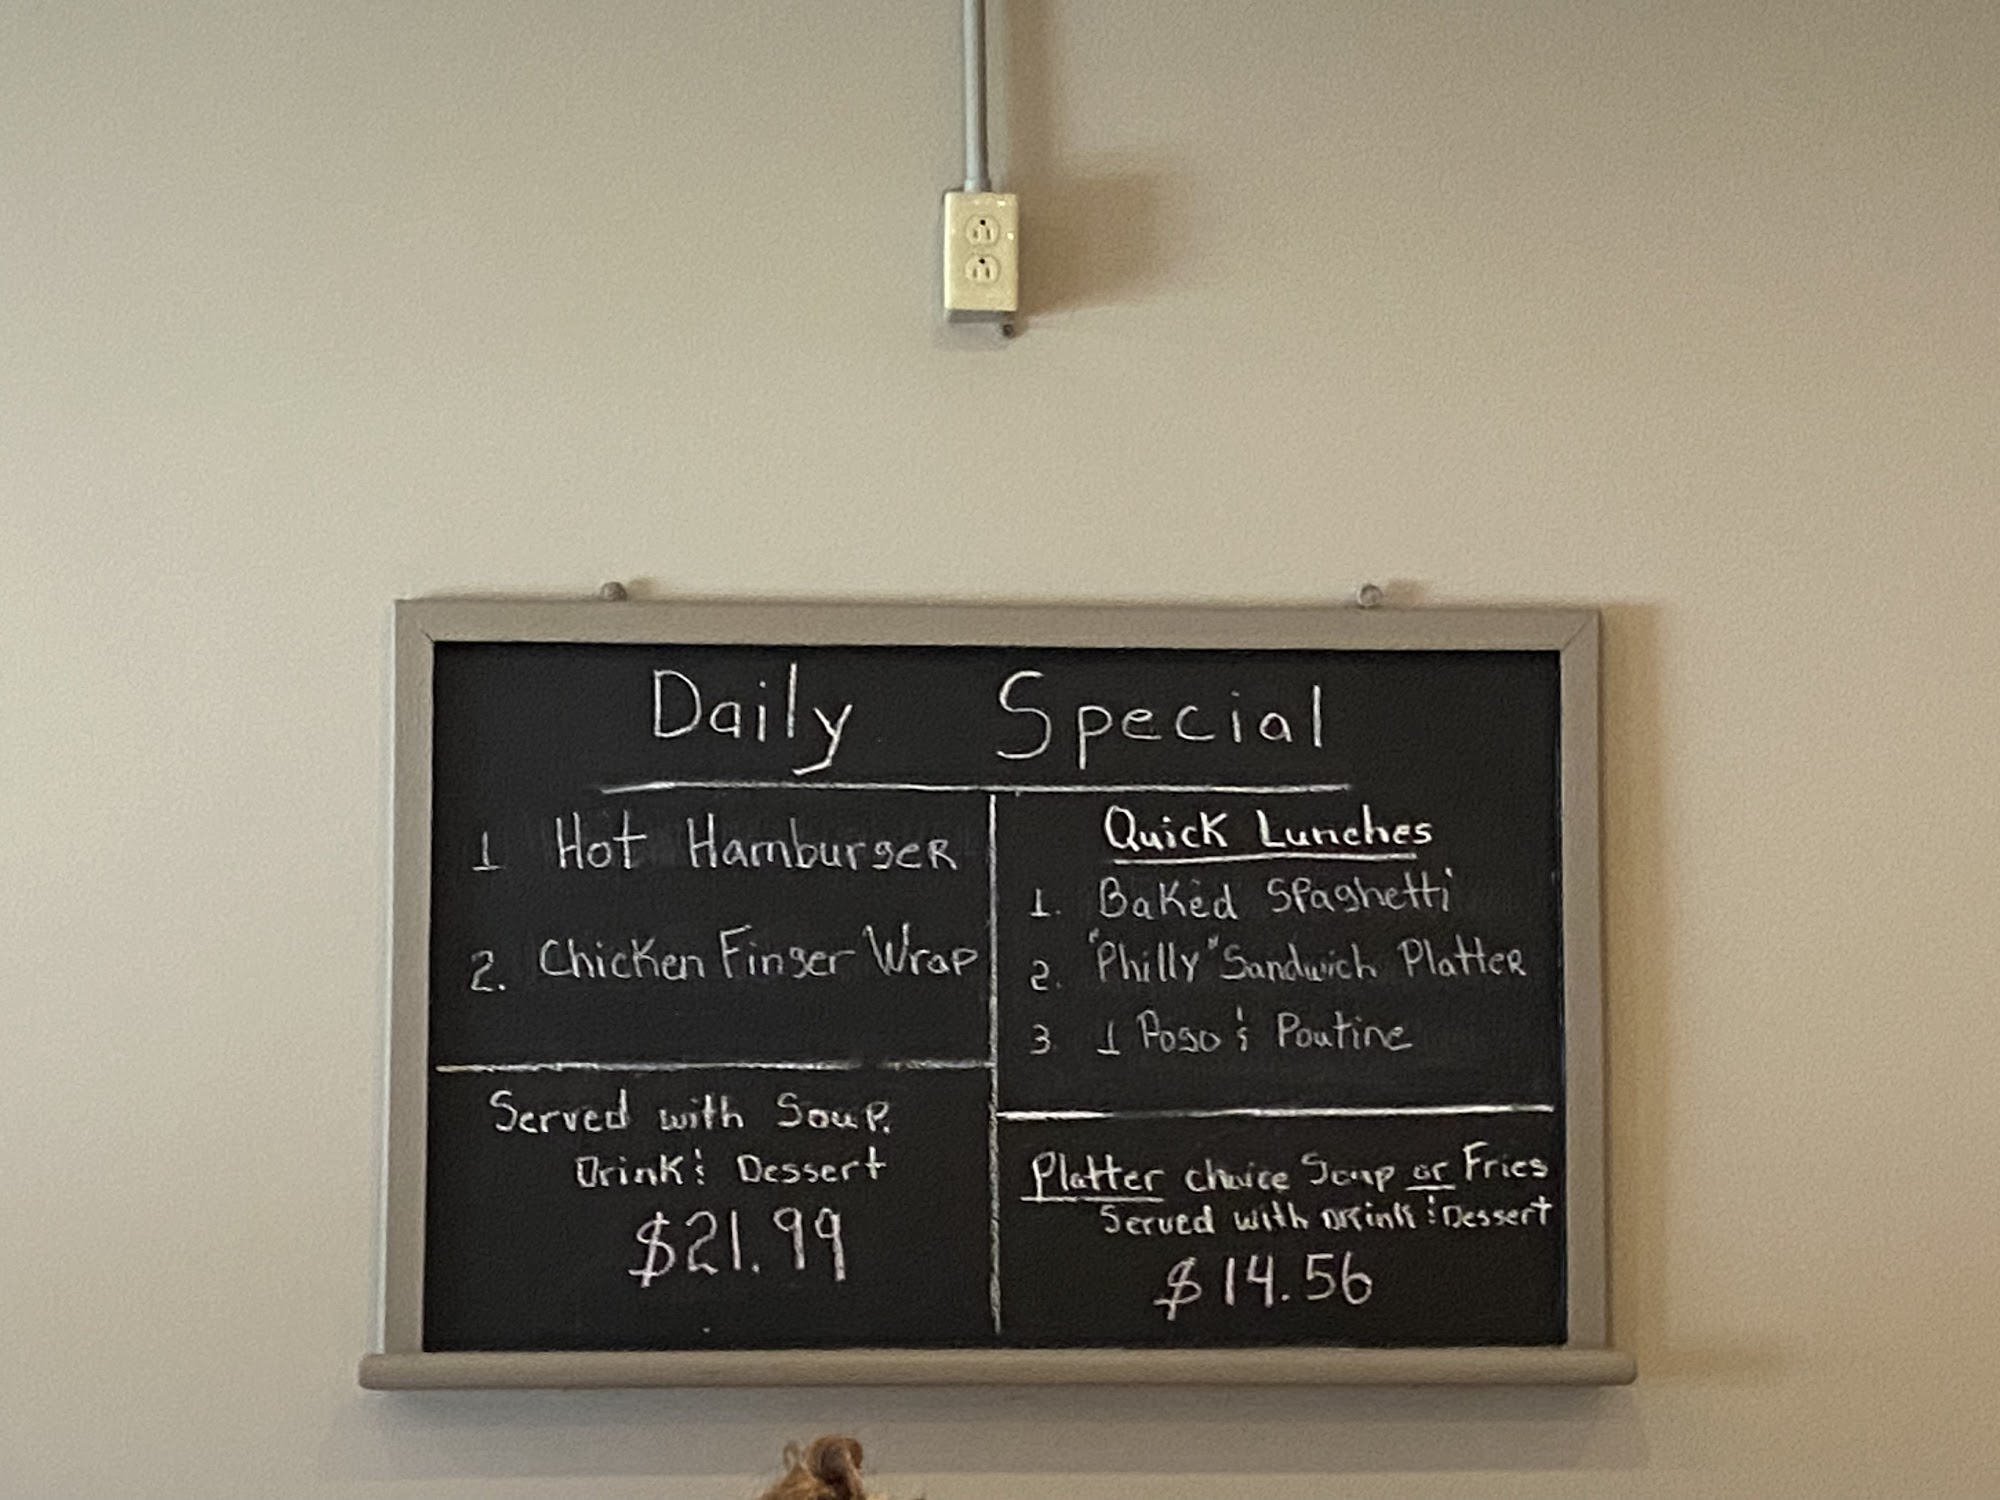 Daily Special
1 Hot Hamburger
2. Chicken Finger Wrap
Served with Soup,
Drink & Dessert
$21.99
Quick Lunches
1. Baked Spaghetti
2. "Philly" Sandwich Platter
3 1 Pogo & Poutine
Platter choice Soup or Fries
Served with Drink & Dessert
$14.56